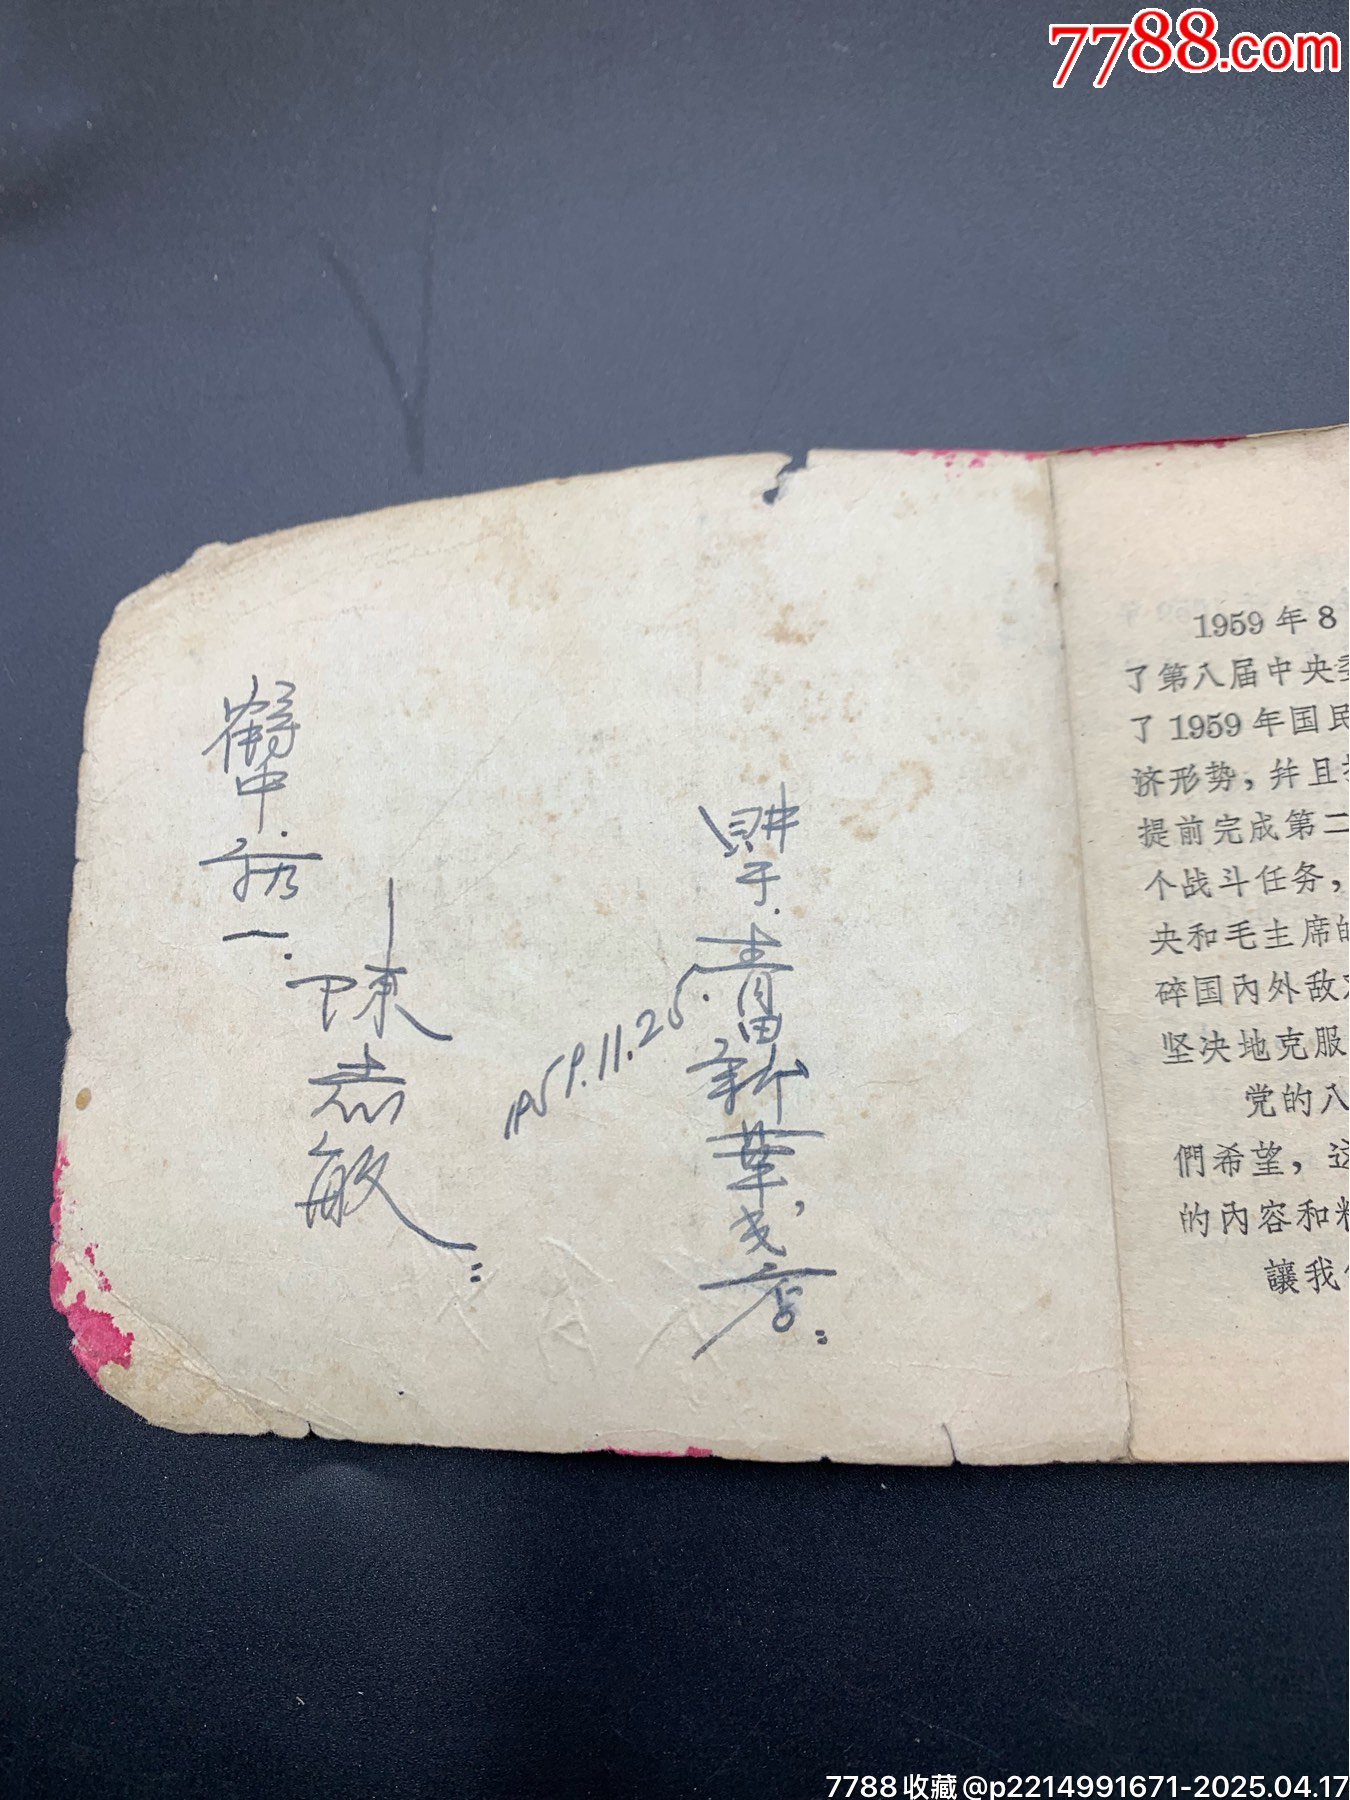 7788.com
購于.青田新華书店:
1959.11.25.
鶴中.初一.陳志敏:
1959年8
了第八届中央委
了1959年国民
济形势，并且
提前完成第二
个战斗任务，
央和毛主席的
碎国內外敌
坚决地克服
党的八
們希望，这
的內容和
讓我
7788收藏@p2214991671-2025.04.17